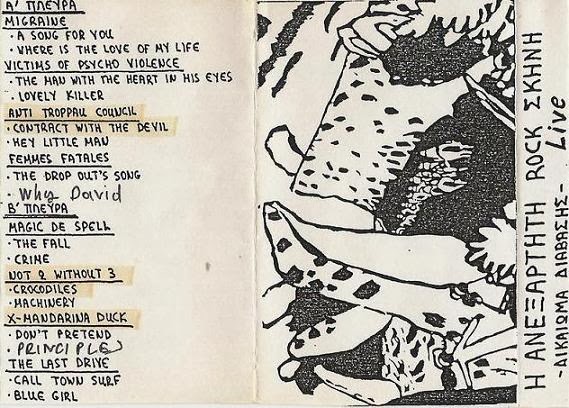 Α' ΠΛΕΥΡΑ
MIGRAINE
· A SONG FOR YOU
· WHERE IS THE LOVE OF MY LIFE
VICTIMS OF PSYCHO VIOLENCE
· THE MAN WITH THE HEART IN HIS EYES
· LOVELY KILLER
ANTI TROPPAU COUNCIL
· CONTRACT WITH THE DEVIL
· HEY LITTLE MAN
FEMMES FATALES
· THE DROP OUT'S SONG
· Why David
Β' ΠΛΕΥΡΑ
MAGIC DE SPELL
· THE FALL
· CRIME
NOT 2 WITHOUT 3
· CROCODILES
· MACHINERY
X-MANDARINA DUCK
· DON'T PRETEND
· PRINCIPLES
THE LAST DRIVE
· CALL TOWN SURF
· BLUE GIRL
Η ΑΝΕΞΑΡΤΗΤΗ ROCK ΣΚΗΝΗ
-ΔΙΚΑΙΩΜΑ ΔΙΑΒΑΣΗΣ- Live